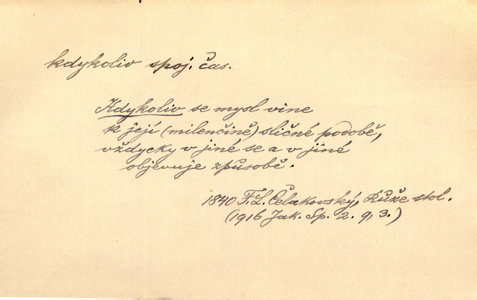 kdykoliv spoj. čas.
Kdykoliv se mysl vine
k její (milenčině) sličné podobě,
vždycky v jiné se a v jiné
objevuje způsobě.
1840 F. L. Čelakovský, Růže stol.
(1916 Jak. Sp. 2. 9, 3.)